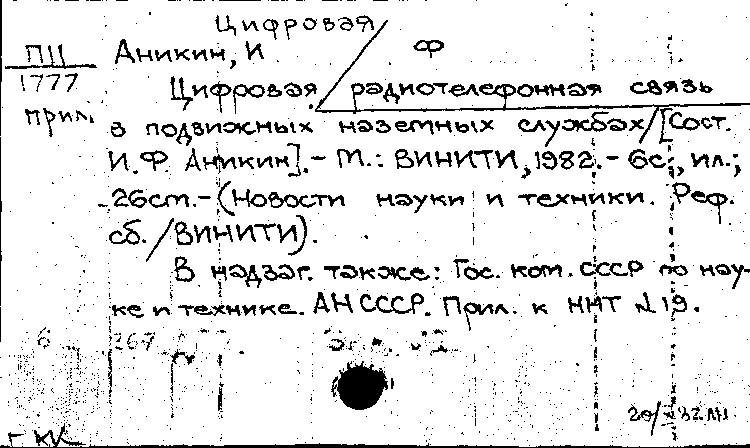 Цифровая
П11 Аникин, И ф
1777 Цифровая радиотелефонная связь
прил. в подвижных наземных службах/[Сост.
И.Ф. Аникин].- М.: ВИНИТИ, 1982.- 6с., ил.;
26см.-(Новости науки и техники. Реф.
сб./ВИНИТИ).
В надзаг. также: Гос. ком. СССР по нау-
ке и технике. АН СССР. Прил. к ННТ №19.
6 267